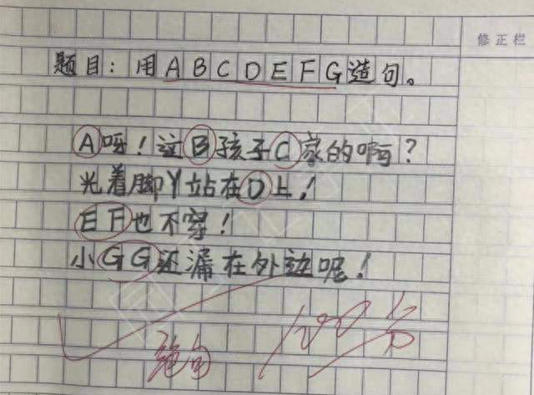 修正栏
题目：用ABCDEFG造句。
A呀！这B孩子C家的啊？
光着脚丫站在D上！
EF也不穿！
小GG还漏在外边呢！
绝句 100分